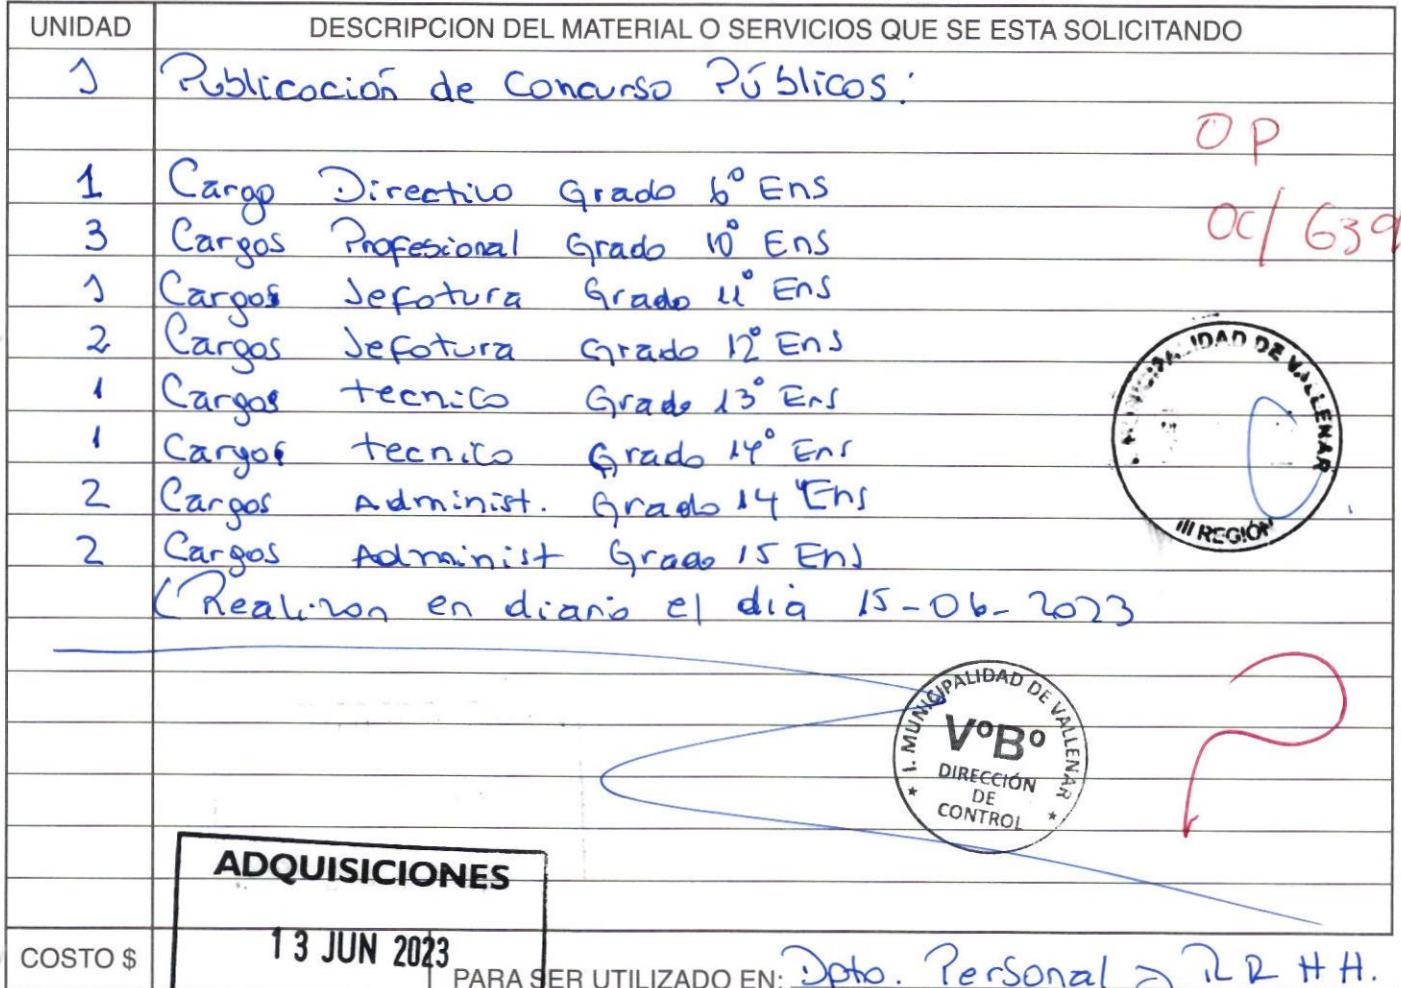 UNIDAD DESCRIPCION DEL MATERIAL O SERVICIOS QUE SE ESTA SOLICITANDO
1 Publicación de Concurso Públicos:
OP
1 Cargo Directivo Grado 6° Ens
OC/ 639
3 Cargos Profesional Grado 10° Ens
1 Cargos Jefatura Grado 11° Ens
2 Cargos Jefatura Grado 12° Ens
1 Cargos tecnico Grado 13° Ens
1 Cargos tecnico Grado 14° Ens
2 Cargos Administ. Grado 14 Ens
2 Cargos Administ Grado 15 Ens
MUNICIPALIDAD DE VALLENAR
III REGIÓN
(Realizan en diario el dia 15-06-2023
I. MUNICIPALIDAD DE VALLENAR
V°B°
DIRECCIÓN
DE
CONTROL
ADQUISICIONES
13 JUN 2023
COSTO $ PARA SER UTILIZADO EN: Dpto. Personal RR HH.